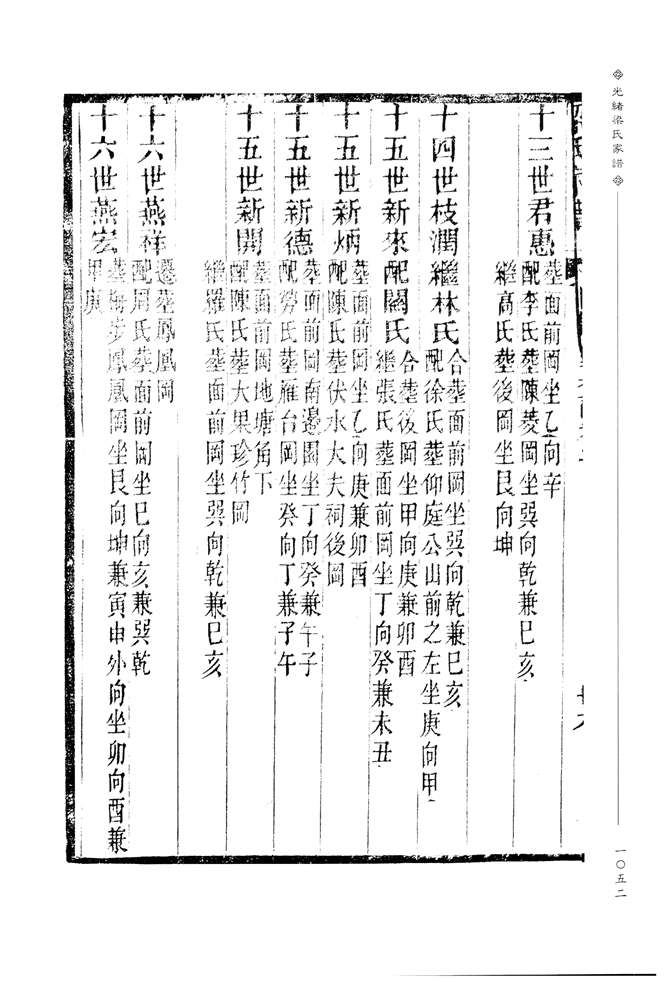 光緒梁氏家譜
一〇五二
十三世君惠
葬面前岡坐乙向辛
配李氏葬陳菱岡坐巽向乾兼巳亥
繼高氏葬後岡坐艮向坤
十四世枝潤繼林氏
合葬面前岡坐巽向乾兼巳亥
配徐氏葬仰庭公山前之左坐庚向甲
十五世新來配閻氏
合葬後岡坐甲向庚兼卯酉
繼張氏葬面前岡坐丁向癸兼未丑
十五世新炳
葬面前岡坐乙向庚兼卯酉
配陳氏葬伏水大夫祠後岡
十五世新德
葬面前岡南邊園坐丁向癸兼午子
配勞氏葬雁台岡坐癸向丁兼子午
十五世新開
葬面前岡地塘角下
配陳氏葬大果珍竹岡
繼羅氏葬面前岡坐巽向乾兼巳亥
十六世燕祥
遷葬鳳凰岡
配周氏葬面前岡坐巳向亥兼巽乾
十六世燕宏
葬梅步鳳凰岡坐艮向坤兼寅申外向坐卯向酉兼
甲庚